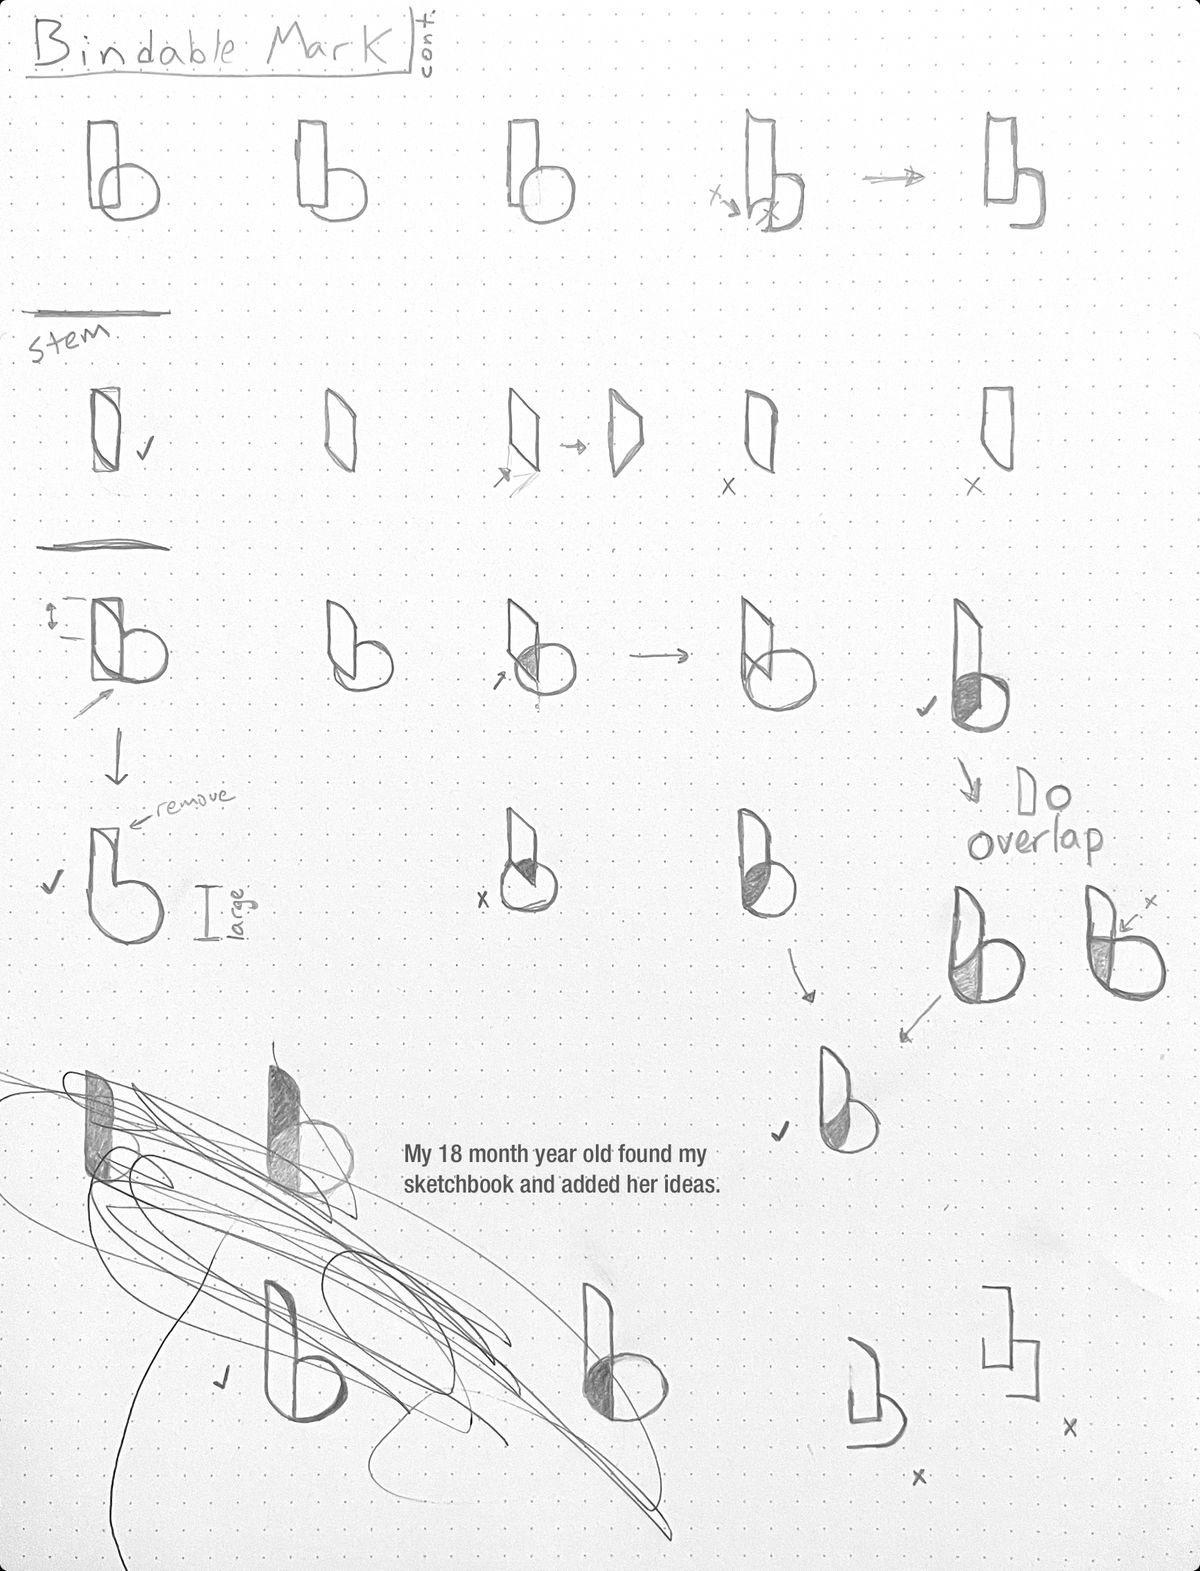 Bindable Mark
cont.
stem
remove
large
overlap
My 18 month year old found my
sketchbook and added her ideas.